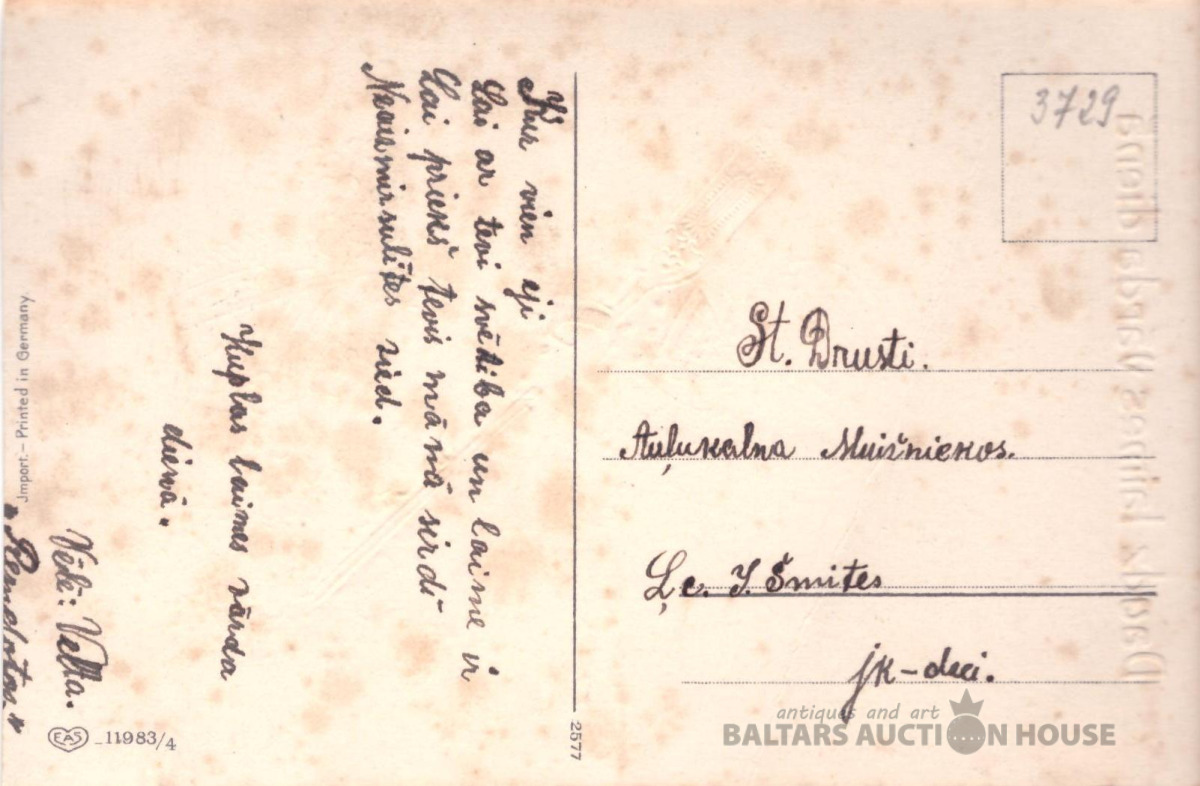 Kur vien ej
Lai ar tevi svētība un laime ir
Lai priekš tevis mānā sirdī
Neaizmirsulītes zied.
Kuplas laimes vārda
dienā.
Vēlē: Velta.
Jmport. – Printed in Germany
EAS 11983/4
2577
3729
St. Drusti.
Auļukalna Muižniekos.
Ļc. J. Šmites
jk-dzei.
antiques and art
BALTARS AUCTION HOUSE